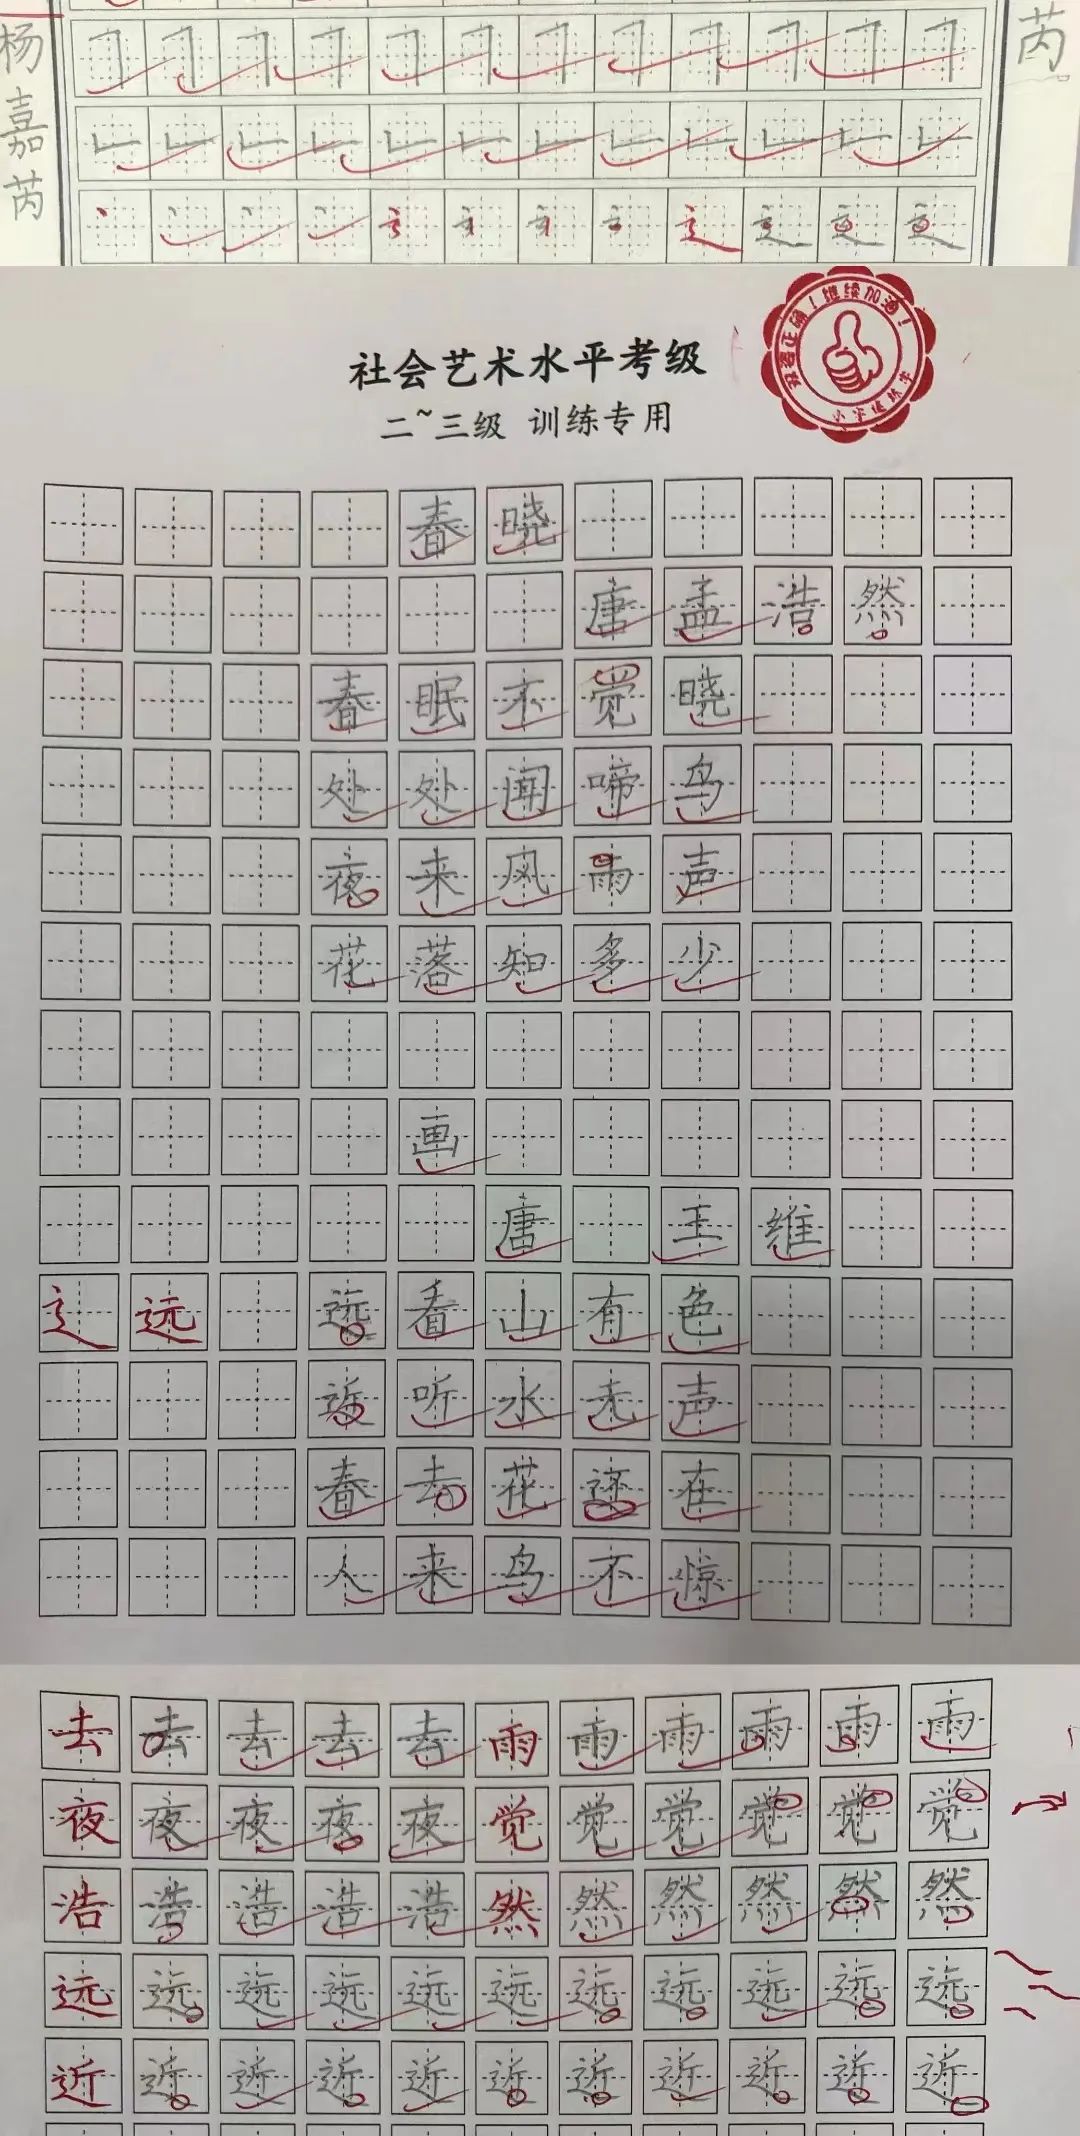 杨嘉芮
芮
社会艺术水平考级
二~三级 训练专用
继续加油！
春晓
唐孟浩然
春眠不觉晓
处处闻啼鸟
夜来风雨声
花落知多少
画
唐 王维
辶远 远看山有色
近听水无声
春去花还在
人来鸟不惊
去去去去去雨雨雨雨雨雨
夜夜夜夜夜觉觉觉觉觉觉
浩浩浩浩浩然然然然然然
远远远远远远远远远远远
近近近近近近近近近近近